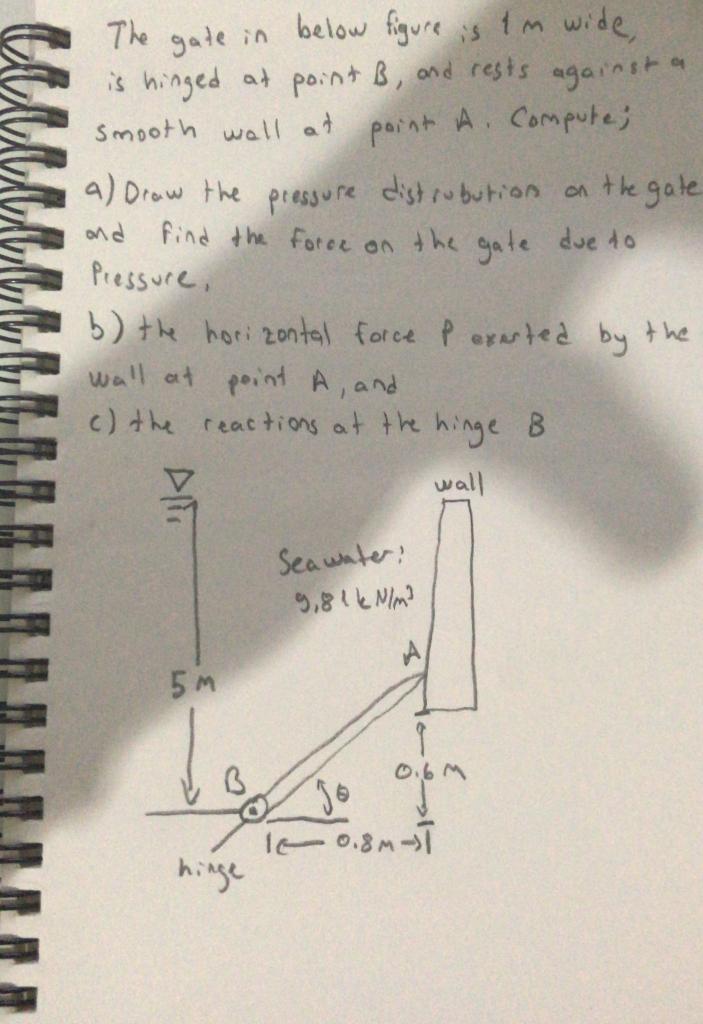 The gate in below figure is 1 m wide,
is hinged at point B, and rests against a
smooth wall at point A. Compute;
a) Draw the pressure distrubution on the gate
and find the force on the gate due to
Pressure,
b) the horizontal force P exerted by the
wall at point A, and
c) the reactions at the hinge B
wall
Seawater:
9,81 kN/m³
A
5 m
B
θ
0.6 m
0.8 m
hinge